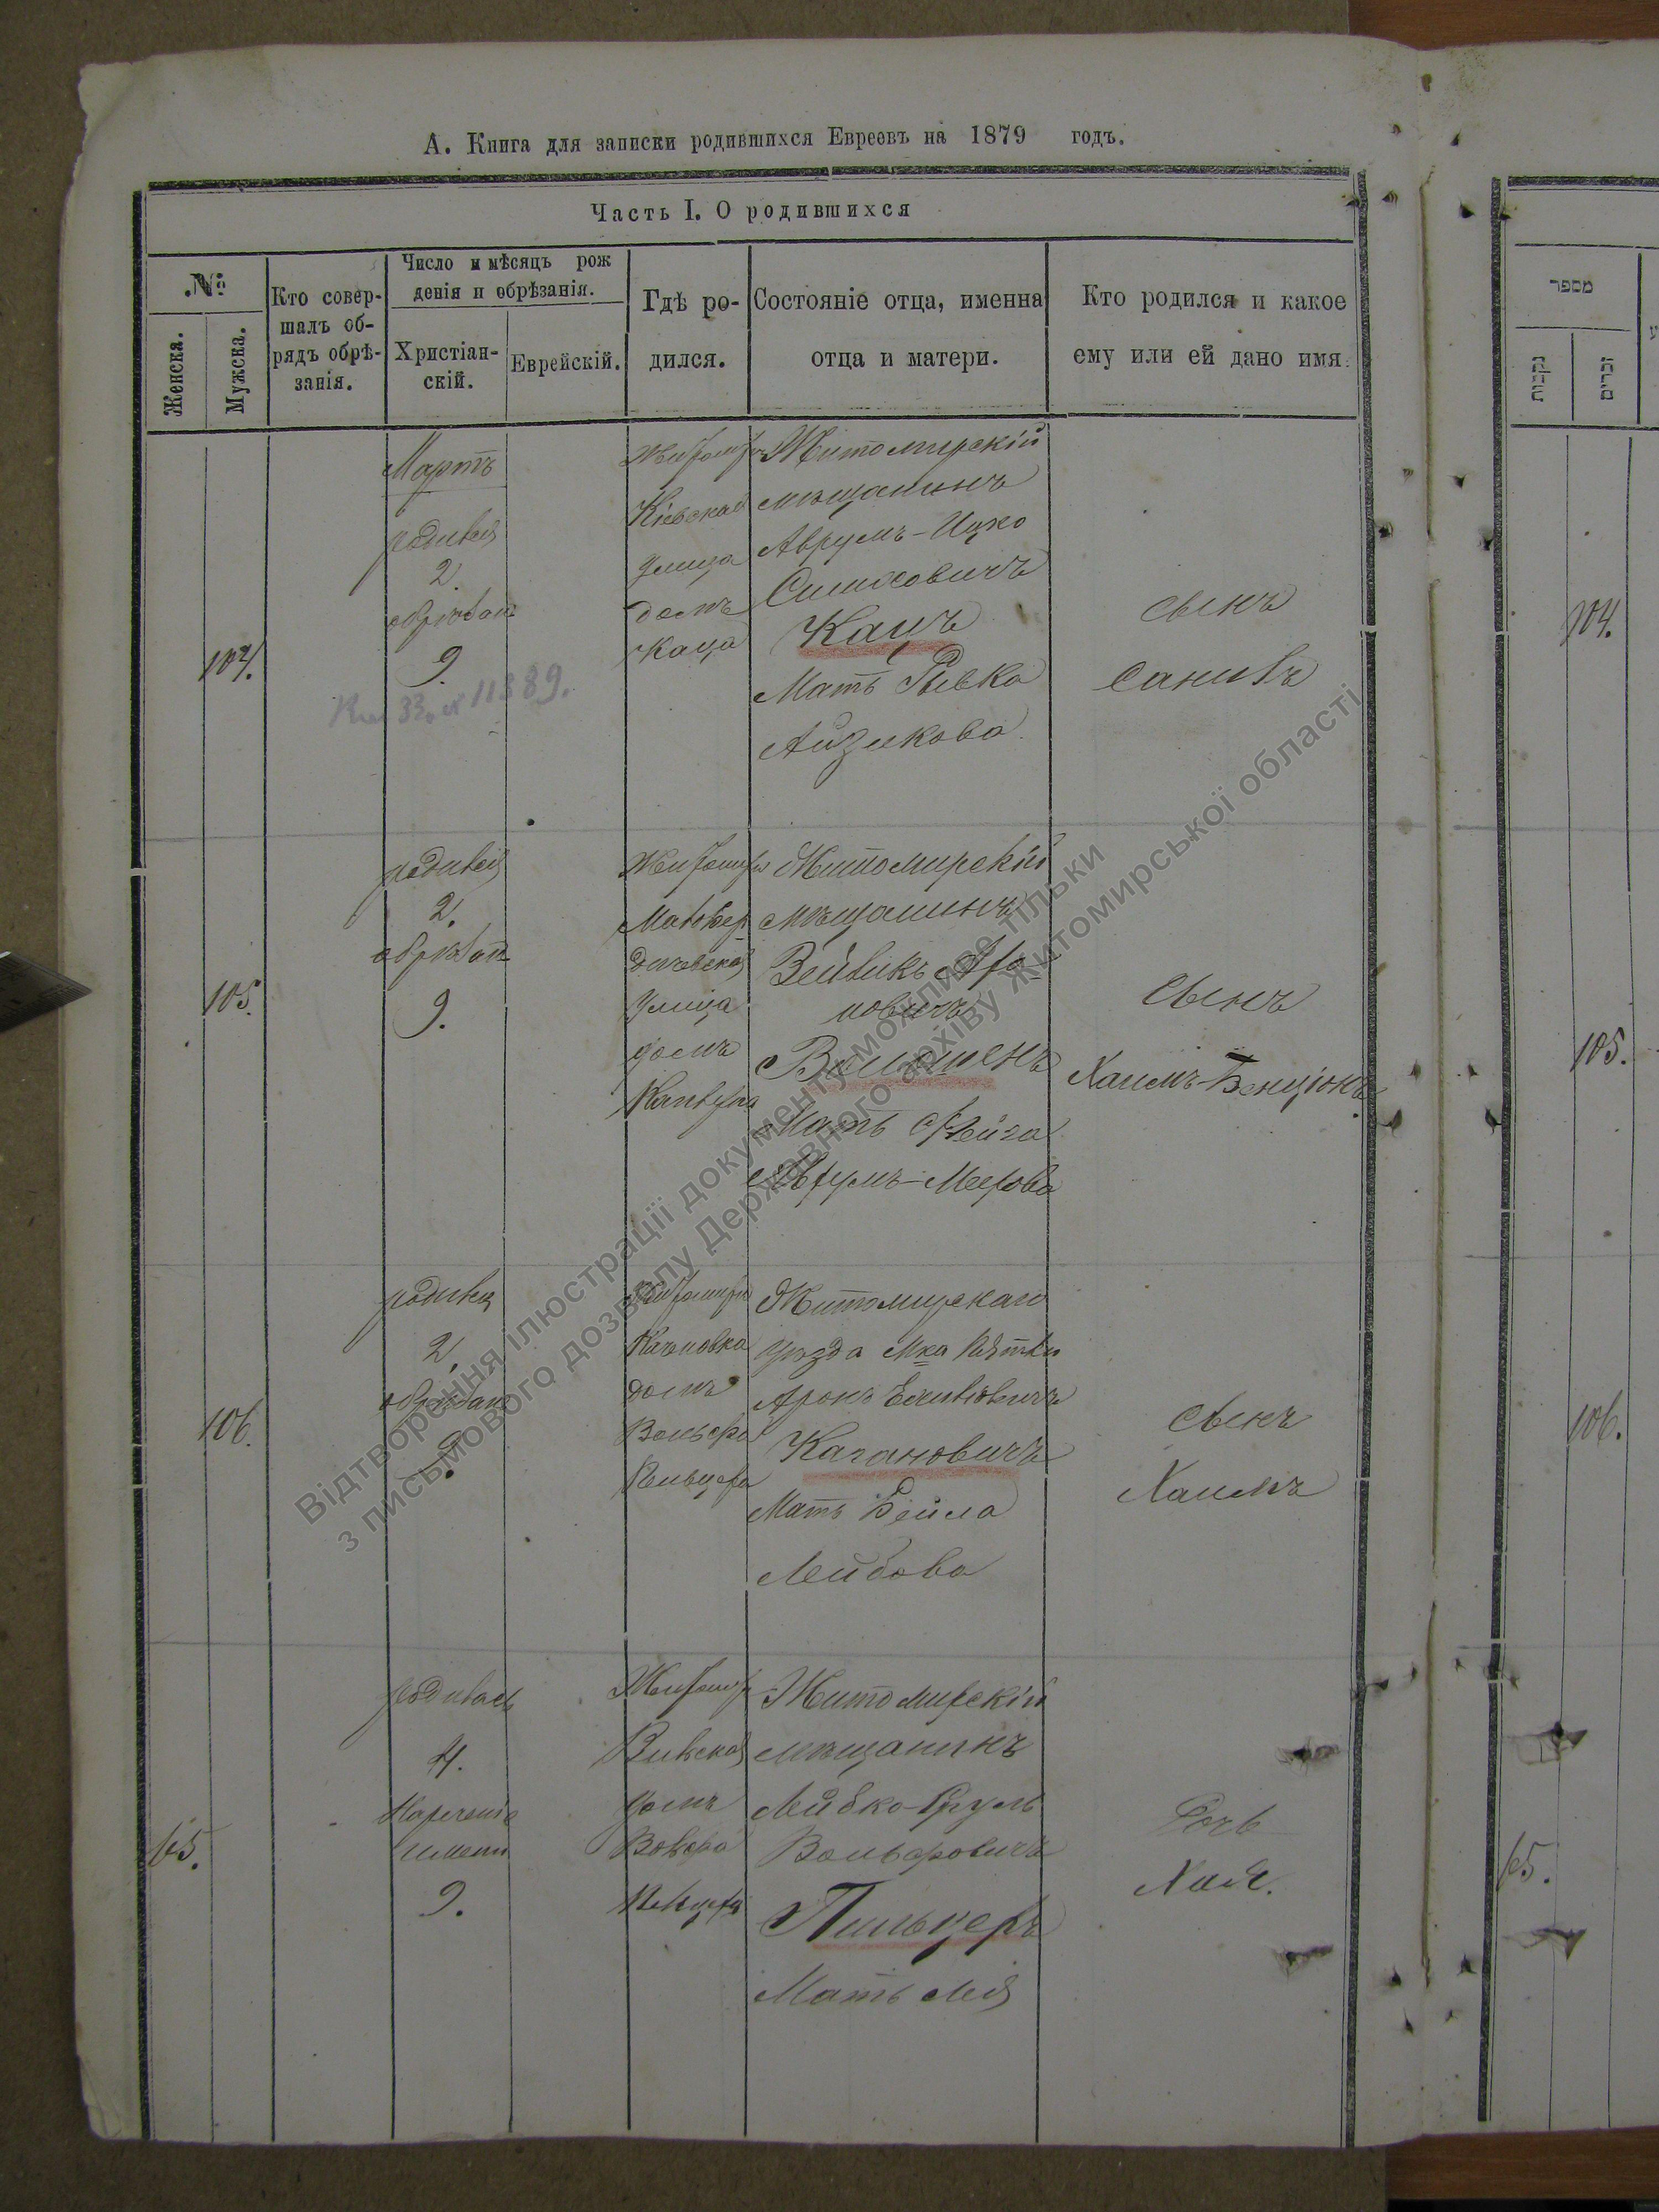 А. Книга для записки родившихся Евреевъ на 1879 годъ.
Часть I. О родившихся
№
Женска.
Мужска.
Кто совер-
шалъ об-
рядъ обрѣ-
занія.
Число и мѣсяцъ рож
денія и обрѣзанія.
Христіан-
скій.
Еврейскій.
Гдѣ ро-
дился.
Состояніе отца, именна
отца и матери.
Кто родился и какое
ему или ей дано имя.
מספר
נקבות
זכרים
104.
Мартъ
родився
2.
обрѣзан
9.
33 11889.
Житомиръ
Кіевская
улица
домъ
Каца
Житомирскій
мѣщанинъ
Аврумъ-Ицко
Симховичъ
Кацъ
Мать Рывка
Айзикова.
сынъ
104.
105.
родився
2.
обрѣзан
9.
Житомиръ
улица
домъ
Житомирскій
мѣщанинъ
Зейвикъ
новичъ
Мать Фейга
Аврумъ-Меерова
Сынъ
Хаимъ-Бенціонъ
105.
106.
родився
2.
обрѣзан
9.
Житомиръ
домъ
Вольфа
Житомирскаго
уѣзда Мка Пятки
Аронъ
Кагановичъ
Мать Бейла
Лейбова
Сынъ
Хаимъ
106.
65.
родилась
4.
Нареченіе
имени
9.
Житомир
домъ
Житомирскій
мѣщанинъ
Лейбко-Сруль
Вольфовичъ
Пильцеръ
Мать Лея
Дочь
Хая.
65.
Відтворення ілюстрації документу можливе тільки
з письмового дозволу Державного архіву Житомирської області